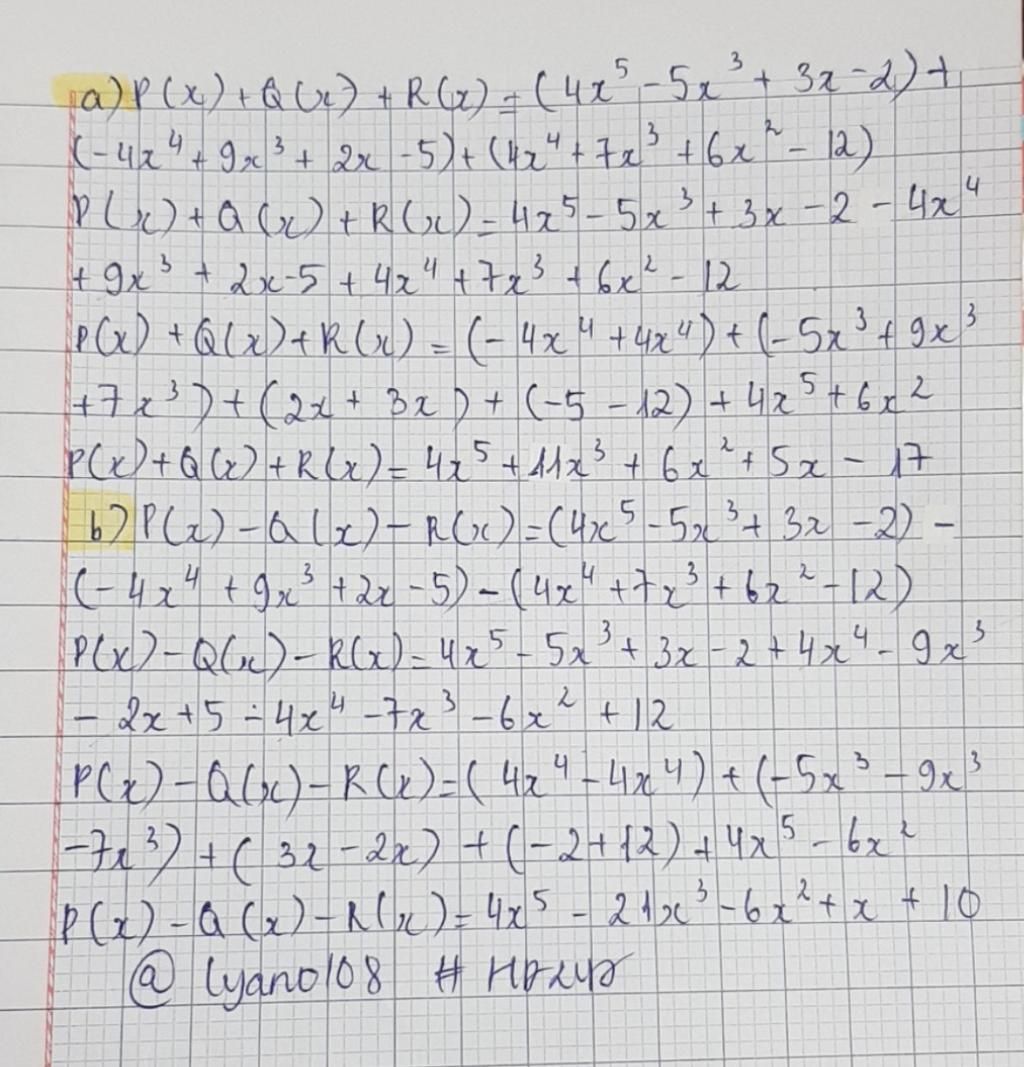 a) P(x) + Q(x) + R(x) = (4x⁵ - 5x³ + 3x - 2) +
(-4x⁴ + 9x³ + 2x - 5) + (4x⁴ + 7x³ + 6x² - 12)
P(x) + Q(x) + R(x) = 4x⁵ - 5x³ + 3x - 2 - 4x⁴
+ 9x³ + 2x - 5 + 4x⁴ + 7x³ + 6x² - 12
P(x) + Q(x) + R(x) = (-4x⁴ + 4x⁴) + (-5x³ + 9x³
+ 7x³) + (2x + 3x) + (-5 - 12) + 4x⁵ + 6x²
P(x) + Q(x) + R(x) = 4x⁵ + 11x³ + 6x² + 5x - 17
b) P(x) - Q(x) - R(x) = (4x⁵ - 5x³ + 3x - 2) -
(-4x⁴ + 9x³ + 2x - 5) - (4x⁴ + 7x³ + 6x² - 12)
P(x) - Q(x) - R(x) = 4x⁵ - 5x³ + 3x - 2 + 4x⁴ - 9x³
- 2x + 5 - 4x⁴ - 7x³ - 6x² + 12
P(x) - Q(x) - R(x) = (4x⁴ - 4x⁴) + (-5x³ - 9x³
- 7x³) + (3x - 2x) + (-2 + 12) + 4x⁵ - 6x²
P(x) - Q(x) - R(x) = 4x⁵ - 21x³ - 6x² + x + 10
@ lyano108 #